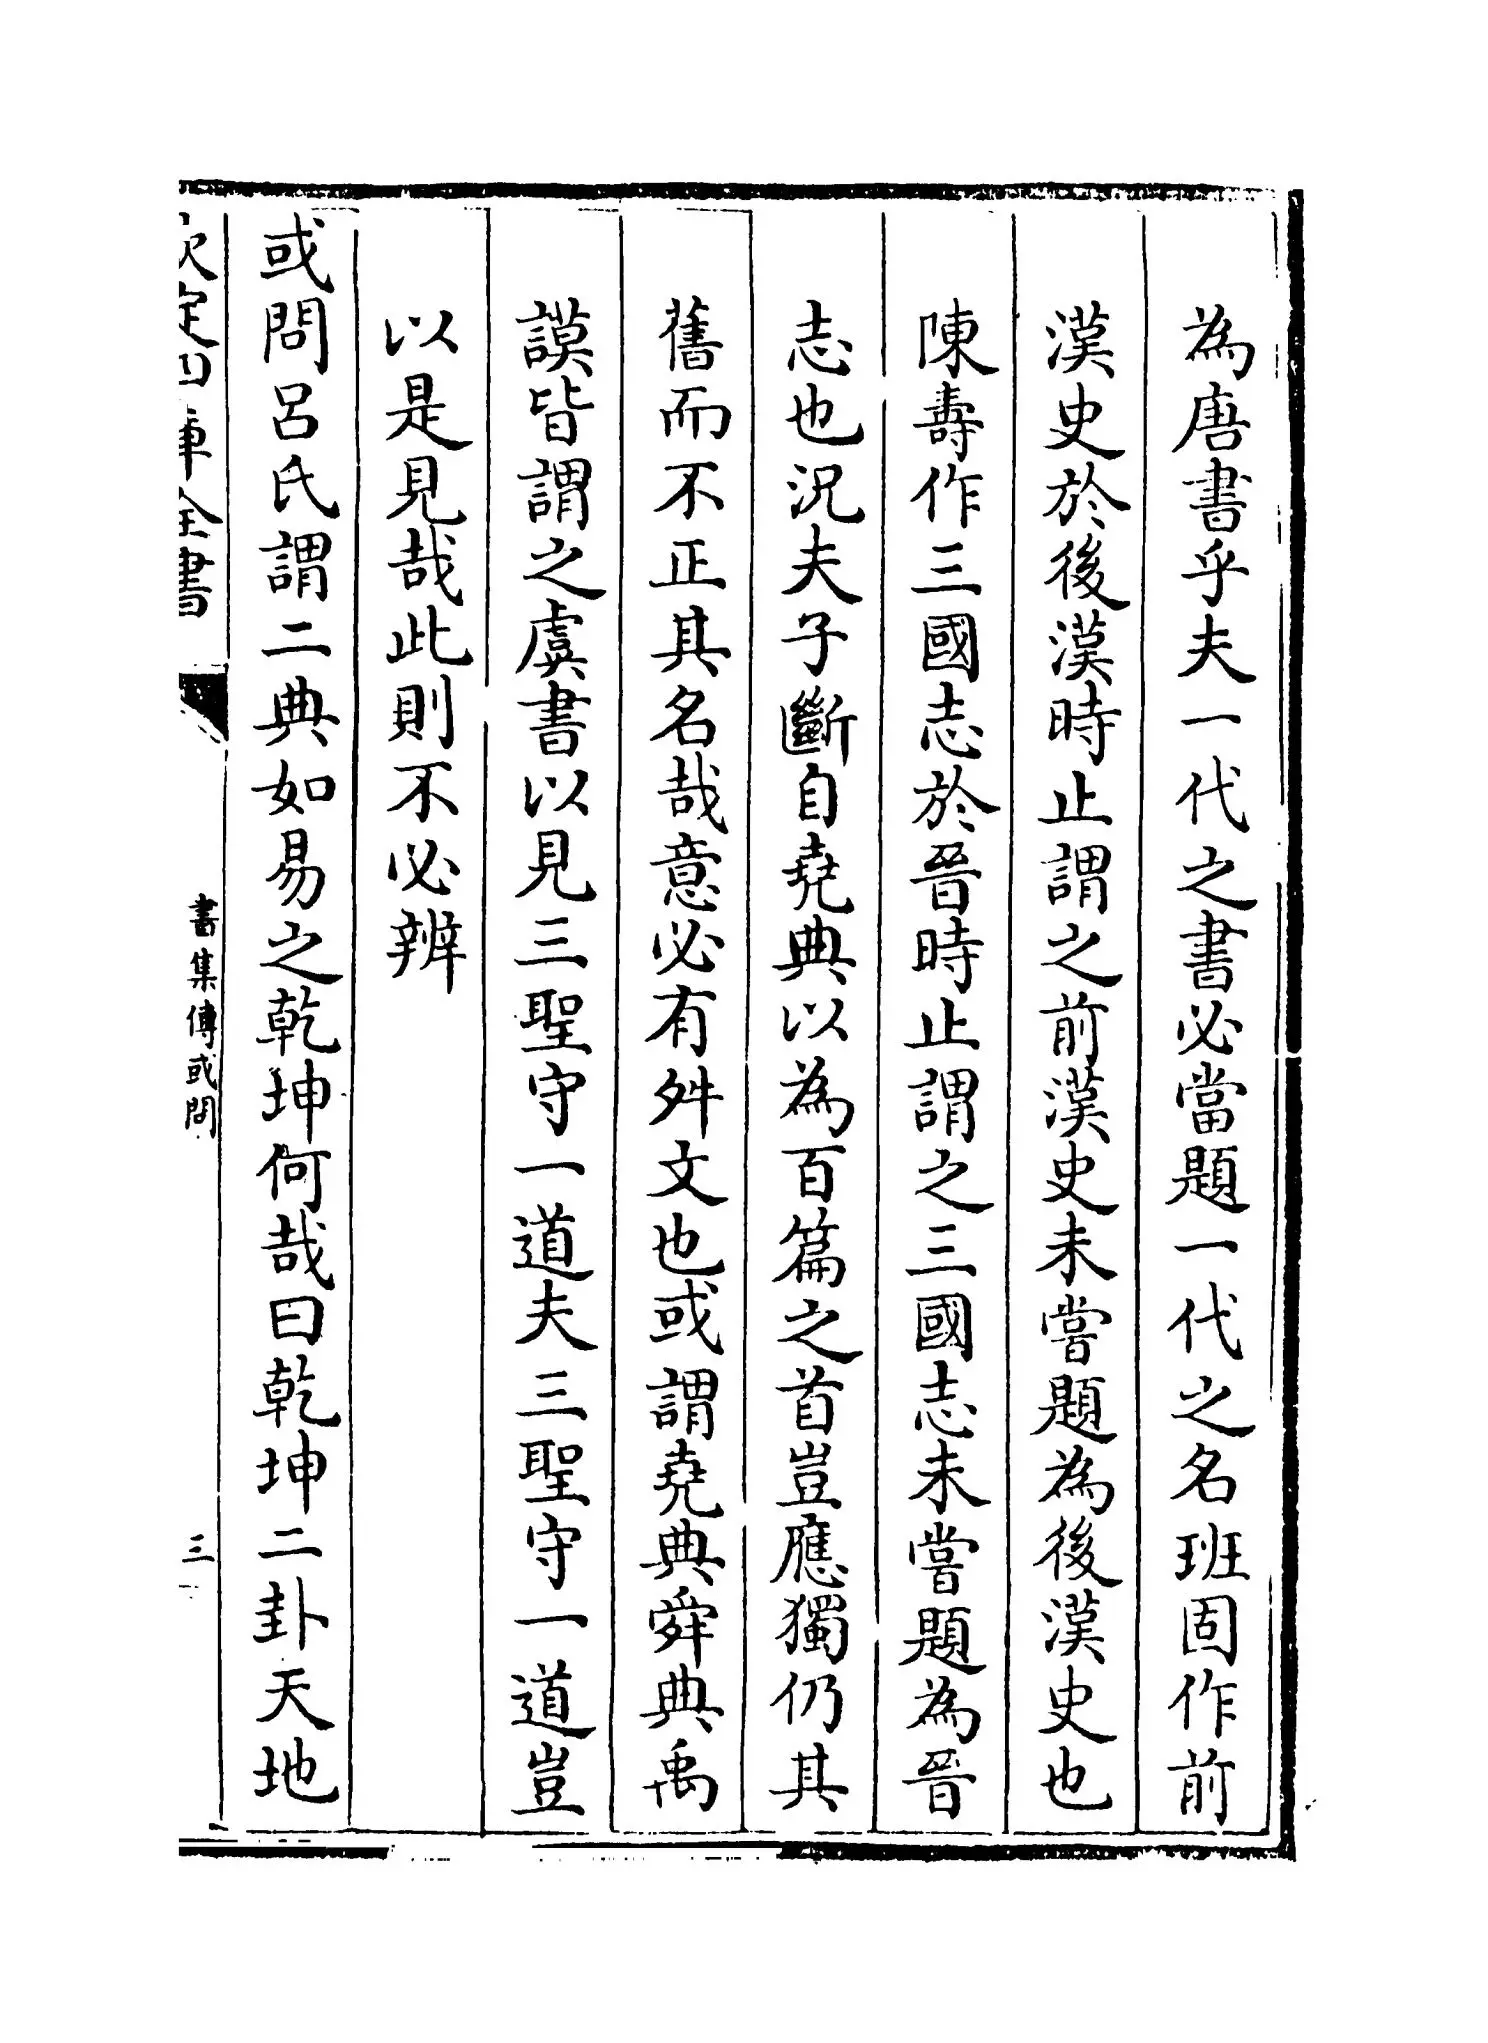 為唐書乎夫一代之書必當題一代之名班固作前
漢史於後漢時止謂之前漢史未嘗題為後漢史也
陳壽作三國志於晉時止謂之三國志未嘗題為晉
志也況夫子斷自堯典以為百篇之首豈應獨仍其
舊而不正其名哉意必有舛文也或謂堯典舜典禹
謨皆謂之虞書以見三聖守一道夫三聖守一道豈
以是見哉此則不必辨
或問呂氏謂二典如易之乾坤何哉曰乾坤二卦天地
欽定四庫全書
書集傳或問
三